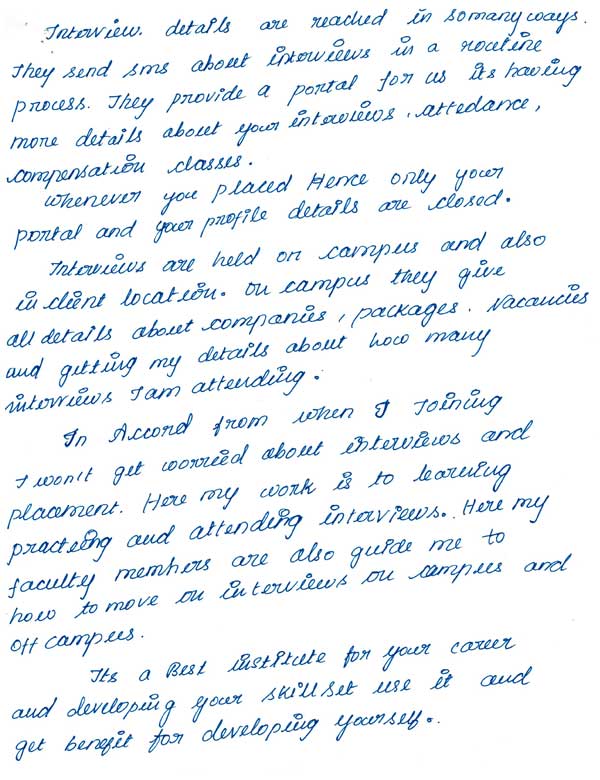 Interview. details are reached in somanyways.
They send sms about interviews in a routine
process. They provide a portal for us its having
more details about your interviews, attedance,
compensation classes.
whenever you placed Hence only your
portal and your profile details are closed.
Interviews are held on campus and also
in client location. On campus they give
all details about companies, packages. Vacancies
and getting my details about how many
interviews I am attending.
In Accord from when I Joining
I won't get worried about interviews and
placement. Here my work is to learning
practicing and attending interviews. Here my
faculty members are also guide me to
how to move on interviews on campus and
off campus.
Its a Best institute for your career
and developing your skillset use it and
get benefit for developing yourself..